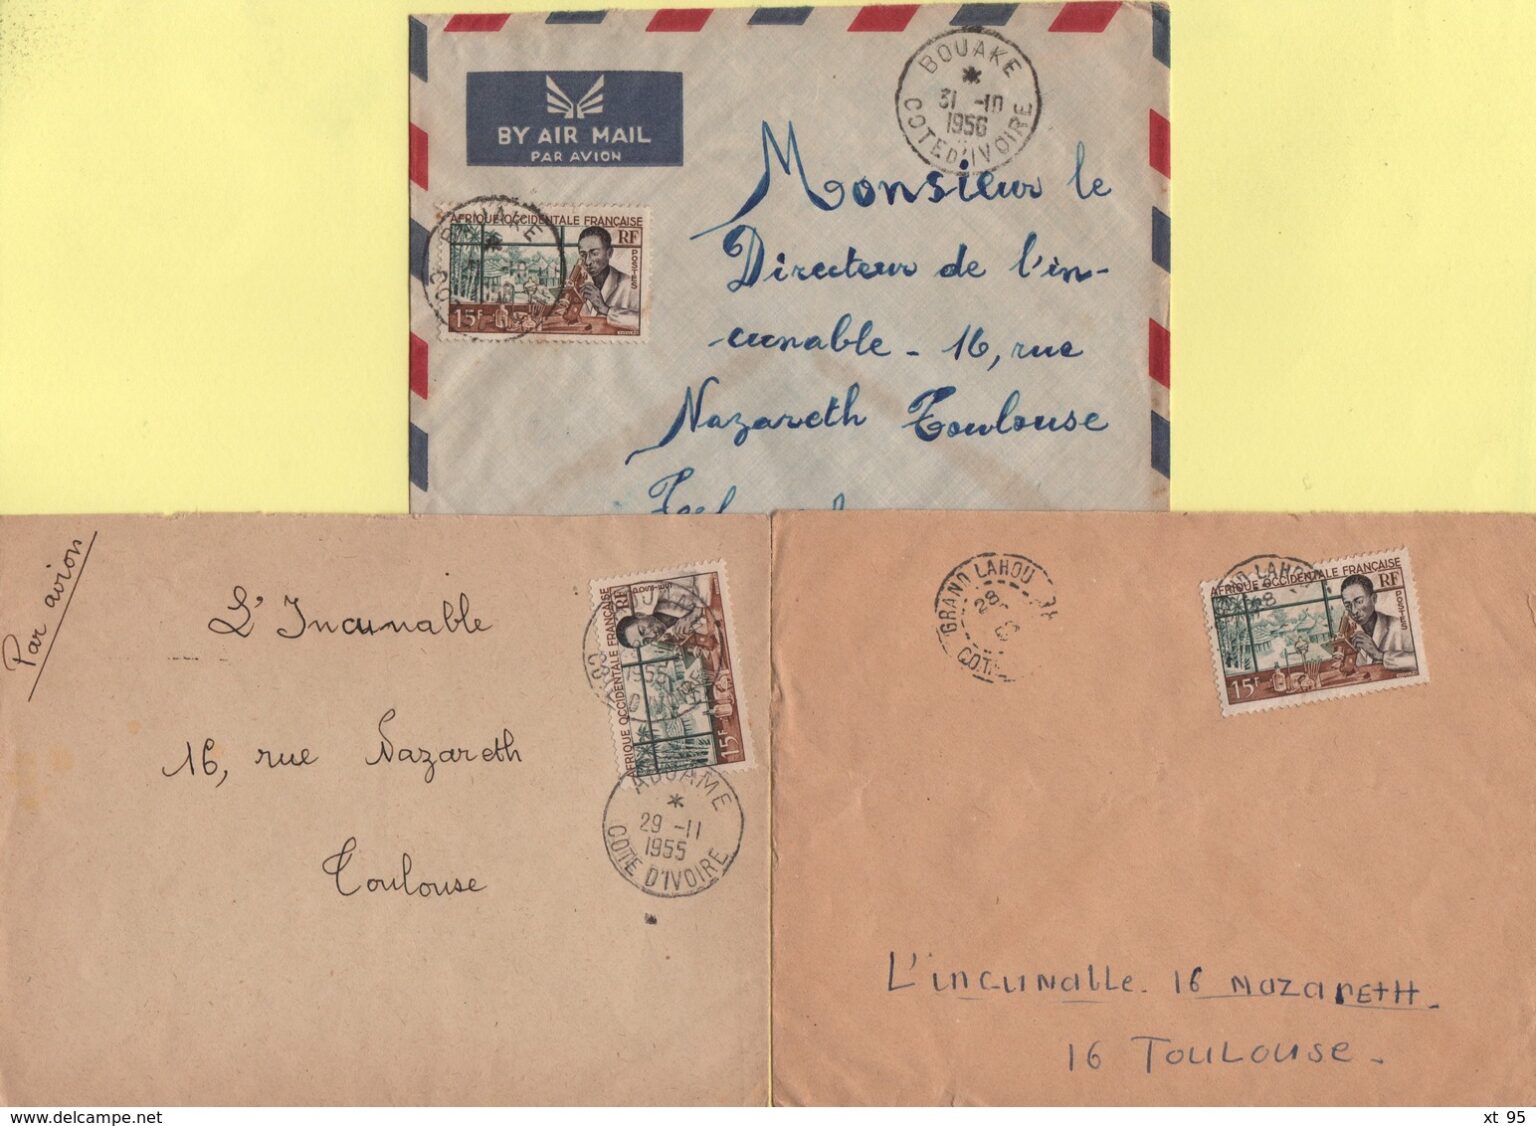 BY AIR MAIL
PAR AVION
BOUAKE
31 -10
1956
COTE D'IVOIRE
AFRIQUE OCCIDENTALE FRANÇAISE
RF
POSTES
15F
Monsieur le
Directeur de l'in-
cunable - 16, rue
Nazareth Toulouse
Par avion
L'Incunable
16, rue Nazareth
Toulouse
AFRIQUE OCCIDENTALE FRANÇAISE
RF
15F
1955
ADJAME
29 -11
1955
COTE D'IVOIRE
GRAND LAHOU
28
COTE
AFRIQUE OCCIDENTALE FRANÇAISE
RF
POSTES
15F
L'incunable. 16 Nazareth.
16 TOULOUSE.
www.delcampe.net
xt 95